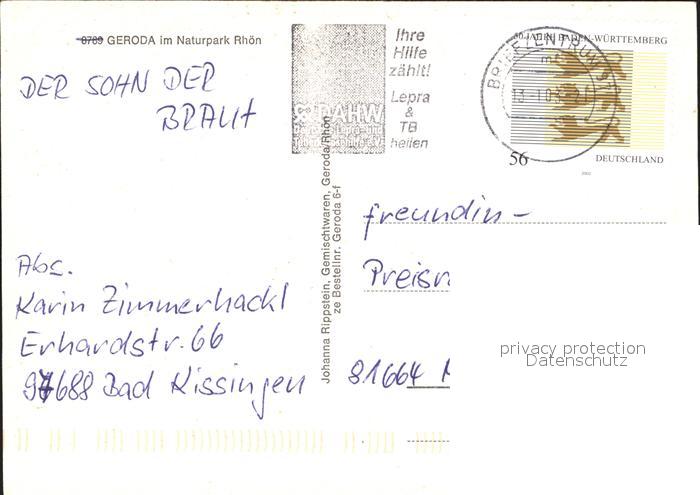 8789 GERODA im Naturpark Rhön
DER SOHN DER
BRAUT
Abs.
Karin Zimmerhackl
Erhardstr. 66
97688 Bad Kissingen
Johanna Rippstein, Gemischtwaren, Geroda/Rhön
ze Bestellnr. Geroda 6-f
Ihre
Hilfe
zählt!
Lepra
&
TB
heilen
DAHW
BRIEFZENTRUM
50 JAHRE BADEN-WÜRTTEMBERG
56 DEUTSCHLAND
2002
freundin-
Preisr
81664 M
privacy protection
Datenschutz